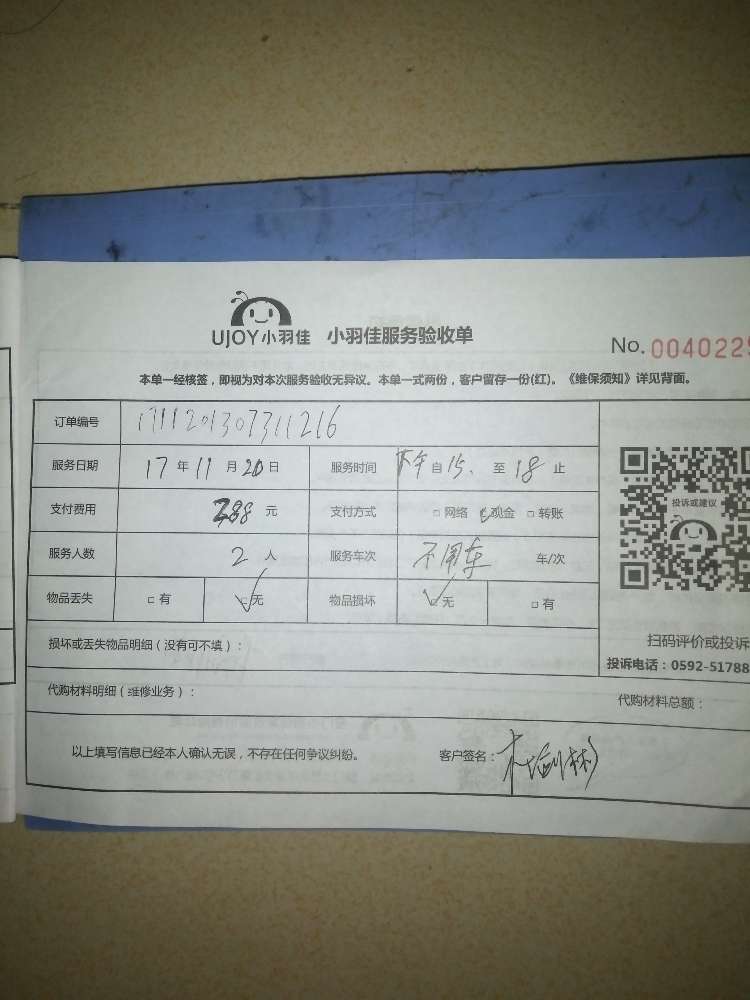 UJOY小羽佳 小羽佳服务验收单
No. 004022
本单一经核签，即视为对本次服务验收无异议。本单一式两份，客户留存一份(红)。《维保须知》详见背面。
订单编号 1711201307311216
服务日期 17 年 11 月 20 日 服务时间 下午 自 15、至 18 止
支付费用 288 元 支付方式 □ 网络 □ 现金 □ 转账
投诉或建议
服务人数 2 人 服务车次 不用车 车/次
物品丢失 □ 有 □ 无 物品损坏 □ 无 □ 有
损坏或丢失物品明细（没有可不填）：
扫码评价或投诉
投诉电话：0592-51788
代购材料明细（维修业务）：
代购材料总额：
以上填写信息已经本人确认无误，不存在任何争议纠纷。 客户签名：